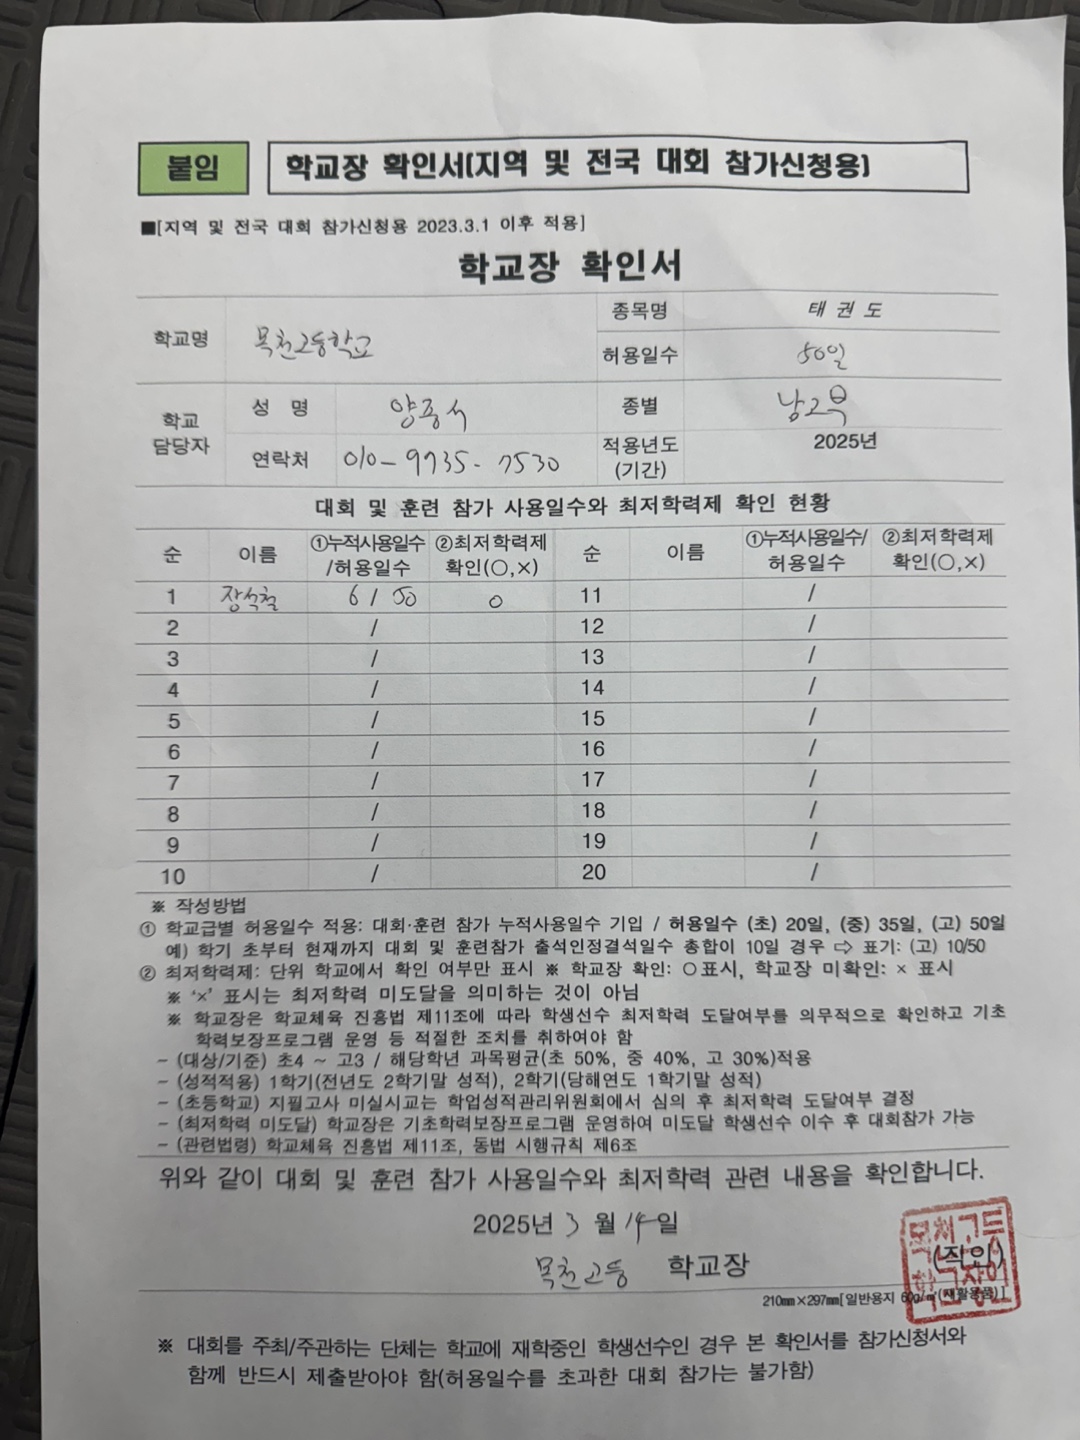 붙임
학교장 확인서(지역 및 전국 대회 참가신청용)
■[지역 및 전국 대회 참가신청용 2023.3.1 이후 적용]
학교장 확인서
학교명 목천고등학교 종목명 태권도
허용일수 50일
학교 담당자 성 명 양종석 종별 남고부
연락처 010-9735-7530 적용년도 (기간) 2025년
대회 및 훈련 참가 사용일수와 최저학력제 확인 현황
순 이름 ①누적사용일수/허용일수 ②최저학력제 확인(○,×) 순 이름 ①누적사용일수/허용일수 ②최저학력제 확인(○,×)
1 장석철 6 / 50 ○ 11 /
2 / 12 /
3 / 13 /
4 / 14 /
5 / 15 /
6 / 16 /
7 / 17 /
8 / 18 /
9 / 19 /
10 / 20 /
※ 작성방법
① 학교급별 허용일수 적용: 대회·훈련 참가 누적사용일수 기입 / 허용일수 (초) 20일, (중) 35일, (고) 50일
예) 학기 초부터 현재까지 대회 및 훈련참가 출석인정결석일수 총합이 10일 경우 ⇨ 표기: (고) 10/50
② 최저학력제: 단위 학교에서 확인 여부만 표시 ※ 학교장 확인: ○표시, 학교장 미확인: × 표시
※ '×' 표시는 최저학력 미도달을 의미하는 것이 아님
※ 학교장은 학교체육 진흥법 제11조에 따라 학생선수 최저학력 도달여부를 의무적으로 확인하고 기초
학력보장프로그램 운영 등 적절한 조치를 취하여야 함
- (대상/기준) 초4 ~ 고3 / 해당학년 과목평균(초 50%, 중 40%, 고 30%)적용
- (성적적용) 1학기(전년도 2학기말 성적), 2학기(당해연도 1학기말 성적)
- (초등학교) 지필고사 미실시교는 학업성적관리위원회에서 심의 후 최저학력 도달여부 결정
- (최저학력 미도달) 학교장은 기초학력보장프로그램 운영하여 미도달 학생선수 이수 후 대회참가 가능
- (관련법령) 학교체육 진흥법 제11조, 동법 시행규칙 제6조
위와 같이 대회 및 훈련 참가 사용일수와 최저학력 관련 내용을 확인합니다.
2025년 3 월 14일
목천고등 학교장 (직인)
목천고등
학교장인
210㎜×297㎜[일반용지 60g/㎡(재활용품)]
※ 대회를 주최/주관하는 단체는 학교에 재학중인 학생선수인 경우 본 확인서를 참가신청서와
함께 반드시 제출받아야 함(허용일수를 초과한 대회 참가는 불가함)